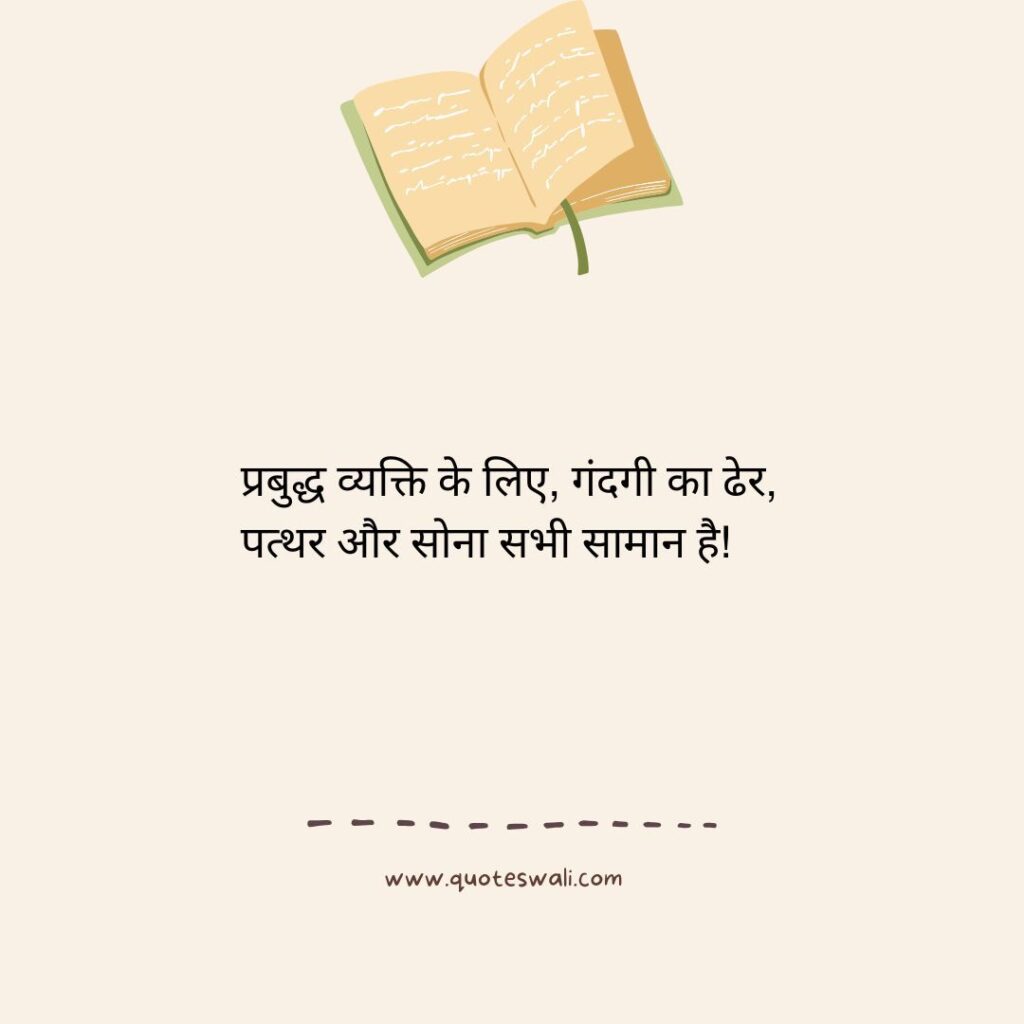 प्रबुद्ध व्यक्ति के लिए, गंदगी का ढेर,
पत्थर और सोना सभी सामान है!
www.quoteswali.com